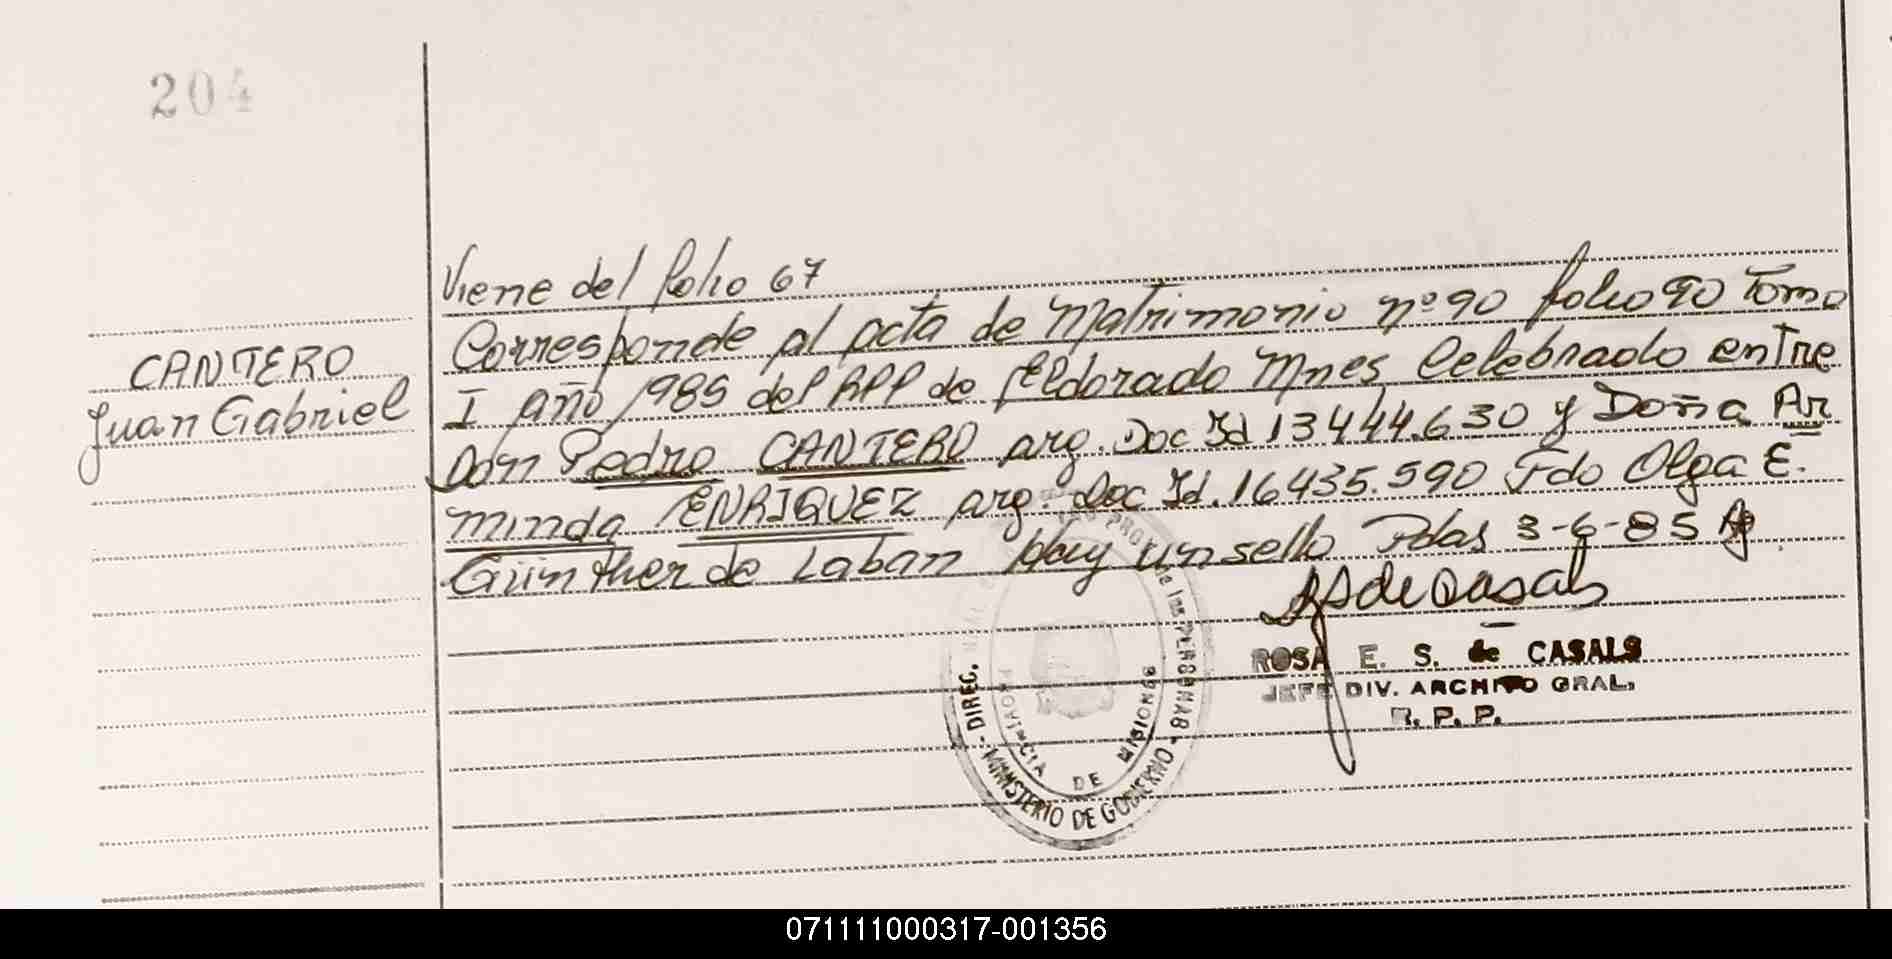 204
Viene del folio 67
CANTERO
Juan Gabriel
Corresponde al acta de Matrimonio nº 90 folio 90 Tomo
I año 1985 del RPP de Eldorado Mnes Celebrado entre
Don Pedro CANTERO arg. Doc Id 13444.630 y Doña Ar
minda ENRIQUEZ arg. Doc Id. 16435.590 Fdo Olga E.
Günther de Laban Hay un sello Pdas 3-6-85
ROSA E. S. de CASALS
JEFE DIV. ARCHIVO GRAL.
R. P. P.
DIREC.
PERSONAS
PROVINCIA DE MISIONES
MINISTERIO DE GOBIERNO
071111000317-001356